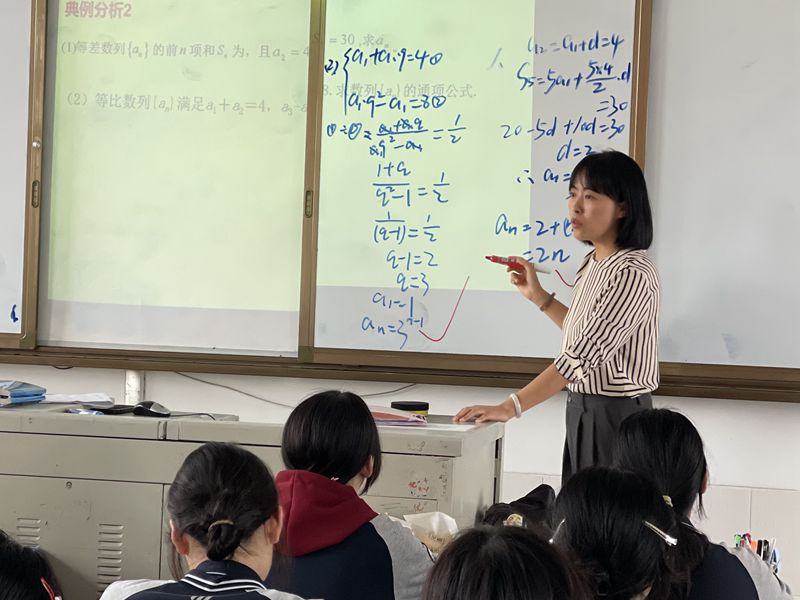 典例分析2
(1)等差数列{aₙ}的前n项和Sₙ为，且a₂=4 S₅=30,求aₙ
(2) 等比数列{aₙ}满足a₁+a₂=4, a₃-a 8.求数列{aₙ}的通项公式.
(2) { a₁+a₁·q=4①
a₁·q²-a₁=8②
①÷②= (a₁+a₁q)/(a₁q²-a₁) = 1/2
(1+q)/(q²-1) = 1/2
1/(q-1) = 1/2
q-1=2
q=3
a₁=1
aₙ=3ⁿ⁻¹
1. a₂=a₁+d=4
S₅=5a₁+(5×4)/2·d
=30
20-5d+10d=30
d=2
∴a₁=
aₙ=2+(
=2n